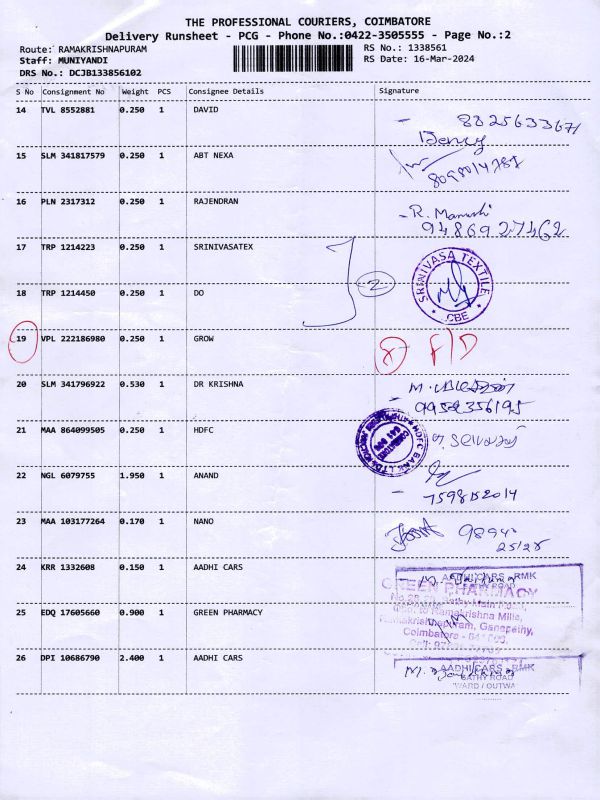 THE PROFESSIONAL COURIERS, COIMBATORE
Delivery Runsheet - PCG - Phone No.:0422-3505555 - Page No.:2
Route: RAMAKRISHNAPURAM RS No.: 1338561
Staff: MUNIYANDI RS Date: 16-Mar-2024
DRS No.: DCJB133856102
S No Consignment No Weight PCS Consignee Details Signature
14 TVL 8552881 0.250 1 DAVID
15 SLM 341817579 0.250 1 ABT NEXA
16 PLN 2317312 0.250 1 RAJENDRAN
R.
9486927462
17 TRP 1214223 0.250 1 SRINIVASATEX
SRINIVASA TEXTILE
CBE
2
18 TRP 1214450 0.250 1 DO
19 VPL 222186980 0.250 1 GROW F/D
20 SLM 341796922 0.530 1 DR KRISHNA
21 MAA 864099505 0.250 1 HDFC
HDFC BANK LTD
22 NGL 6079755 1.950 1 ANAND
23 MAA 103177264 0.170 1 NANO
24 KRR 1332608 0.150 1 AADHI CARS
AADHI CARS - RMK
GREEN PHARMACY
25 EDQ 17605660 0.900 1 GREEN PHARMACY
Ramakrishna Mills,
Ramakrishnapuram, Ganapathy,
Coimbatore
26 DPI 10686790 2.400 1 AADHI CARS
AADHI CARS - RMK
SATHY ROAD